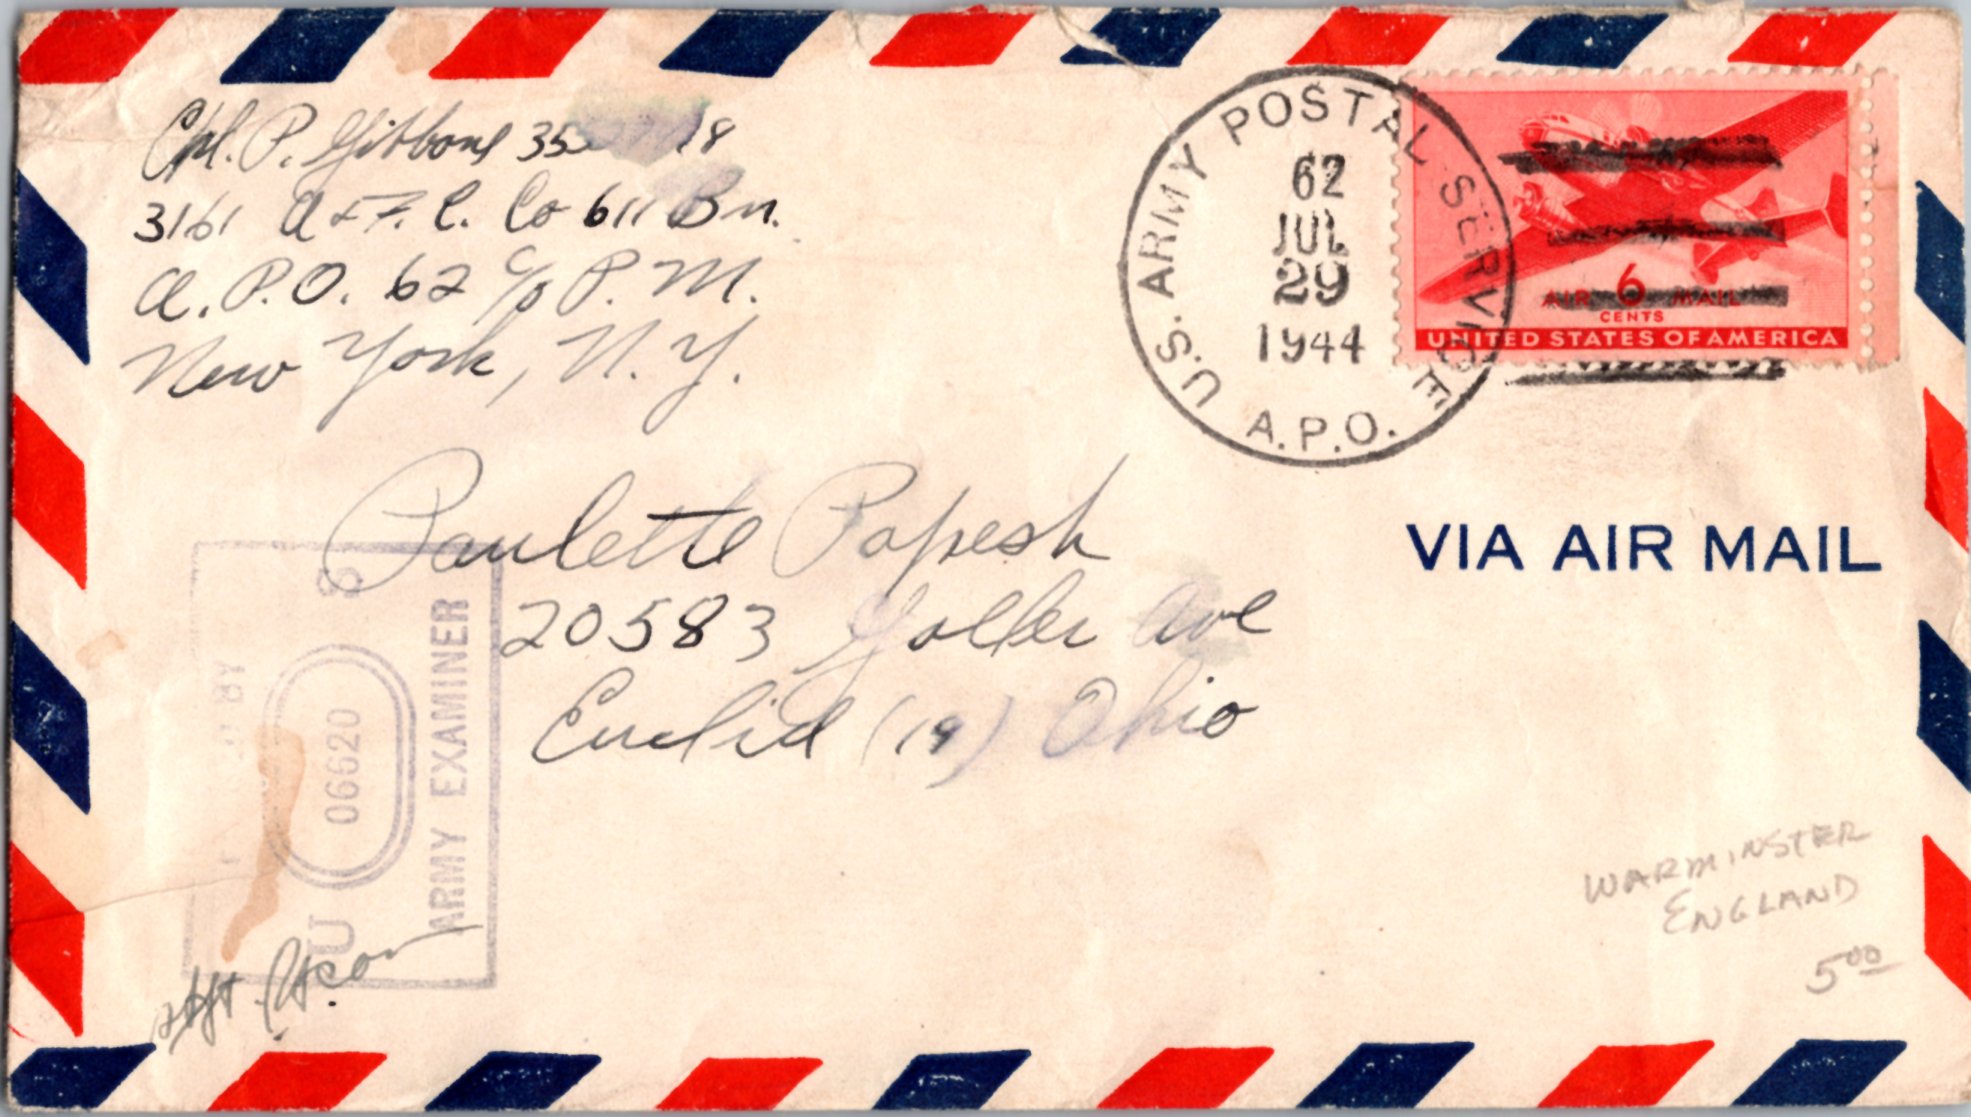 Cpl. P. Gibbons 35
3161 Q & F. C. Co 611 Bn.
A.P.O. 62 c/o P.M.
New York, N.Y.
U.S. ARMY POSTAL SERVICE
A.P.O.
62
JUL
29
1944
AIR 6 MAIL
CENTS
UNITED STATES OF AMERICA
Paulette Papesh
20583 Goller Ave
Euclid (19) Ohio
VIA AIR MAIL
BY
U 06620 S
ARMY EXAMINER
WARMINSTER
ENGLAND
5.00